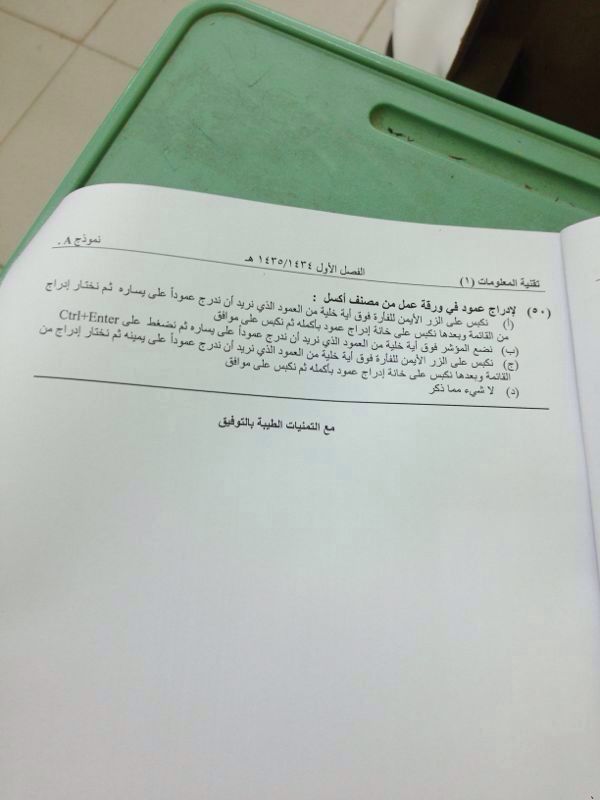 تقنية المعلومات (١) الفصل الأول ١٤٣٥/١٤٣٤ هـ نموذج A .
(٥٠) لإدراج عمود في ورقة عمل من مصنف أكسل :
(أ) نكبس على الزر الأيمن للفأرة فوق أية خلية من العمود الذي نريد أن ندرج عموداً على يساره ثم نختار إدراج
من القائمة وبعدها نكبس على خانة إدراج عمود بأكمله ثم نكبس على موافق
(ب) نضع المؤشر فوق أية خلية من العمود الذي نريد أن ندرج عموداً على يساره ثم نضغط على Ctrl+Enter
(ج) نكبس على الزر الأيمن للفأرة فوق أية خلية من العمود الذي نريد أن ندرج عموداً على يمينه ثم نختار إدراج من
القائمة وبعدها نكبس على خانة إدراج عمود بأكمله ثم نكبس على موافق
(د) لا شيء مما ذكر
مع التمنيات الطيبة بالتوفيق